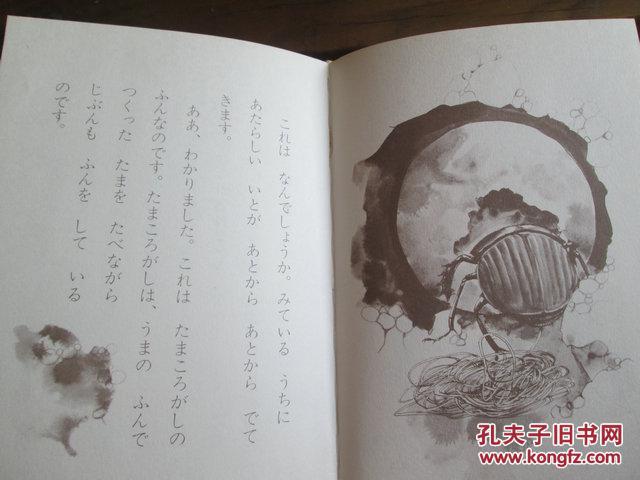 これは なんでしょうか。みている うちに
あたらしい いとが あとから あとから でて
きます。
ああ、わかりました。これは たまころがしの
ふんなのです。たまころがしは、うまの ふんで
つくった たまを たべながら
じぶんも ふんを して いる
のです。
孔夫子旧书网
www.kongfz.com